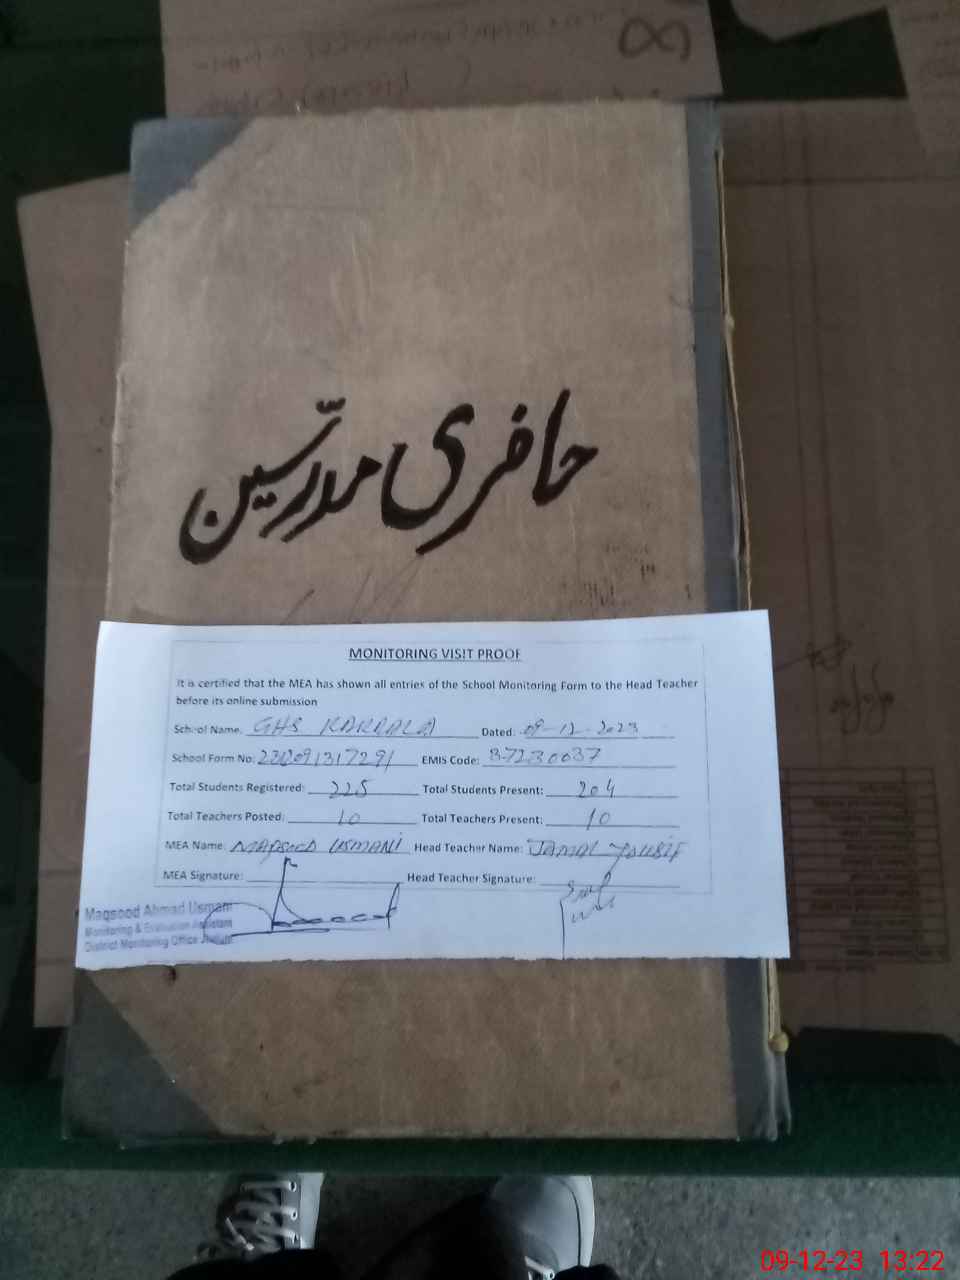 حاضری مدرسین
MONITORING VISIT PROOF
It is certified that the MEA has shown all entries of the School Monitoring Form to the Head Teacher
before its online submission
School Name: GHS KAKRALA Dated: 09-12-2023
School Form No: EMIS Code: 37230037
Total Students Registered: 225 Total Students Present: 204
Total Teachers Posted: 10 Total Teachers Present: 10
MEA Name: MAQSOOD USMANI Head Teacher Name: JAMAL YOUSIF
MEA Signature: Head Teacher Signature:
Maqsood Ahmad Usmani
Monitoring & Evaluation Assistant
District Monitoring Office Jhelum
09-12-23 13:22